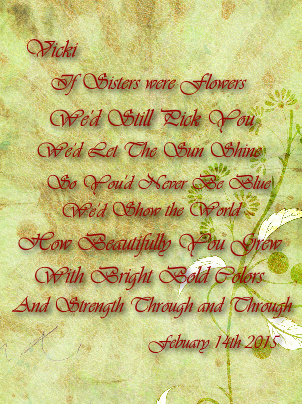 Vicki
If Sisters were Flowers
We'd Still Pick You
We'd Let The Sun Shine
So You'd Never Be Blue
We'd Show the World
How Beautifully You Grew
With Bright Bold Colors
And Strength Through and Through
Febuary 14th 2015